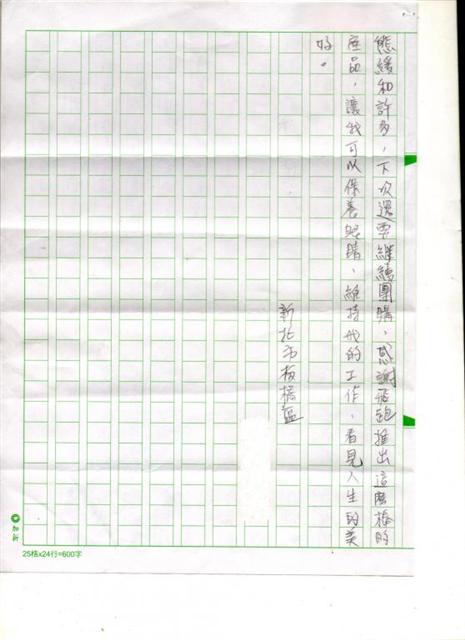 態緩和許多，下次還要繼續團購，感謝飛跑推出這麼棒的
產品，讓我可以保養眼睛，維持我的工作，看見人生的美
好。
新北市板橋區
25格x24行=600字